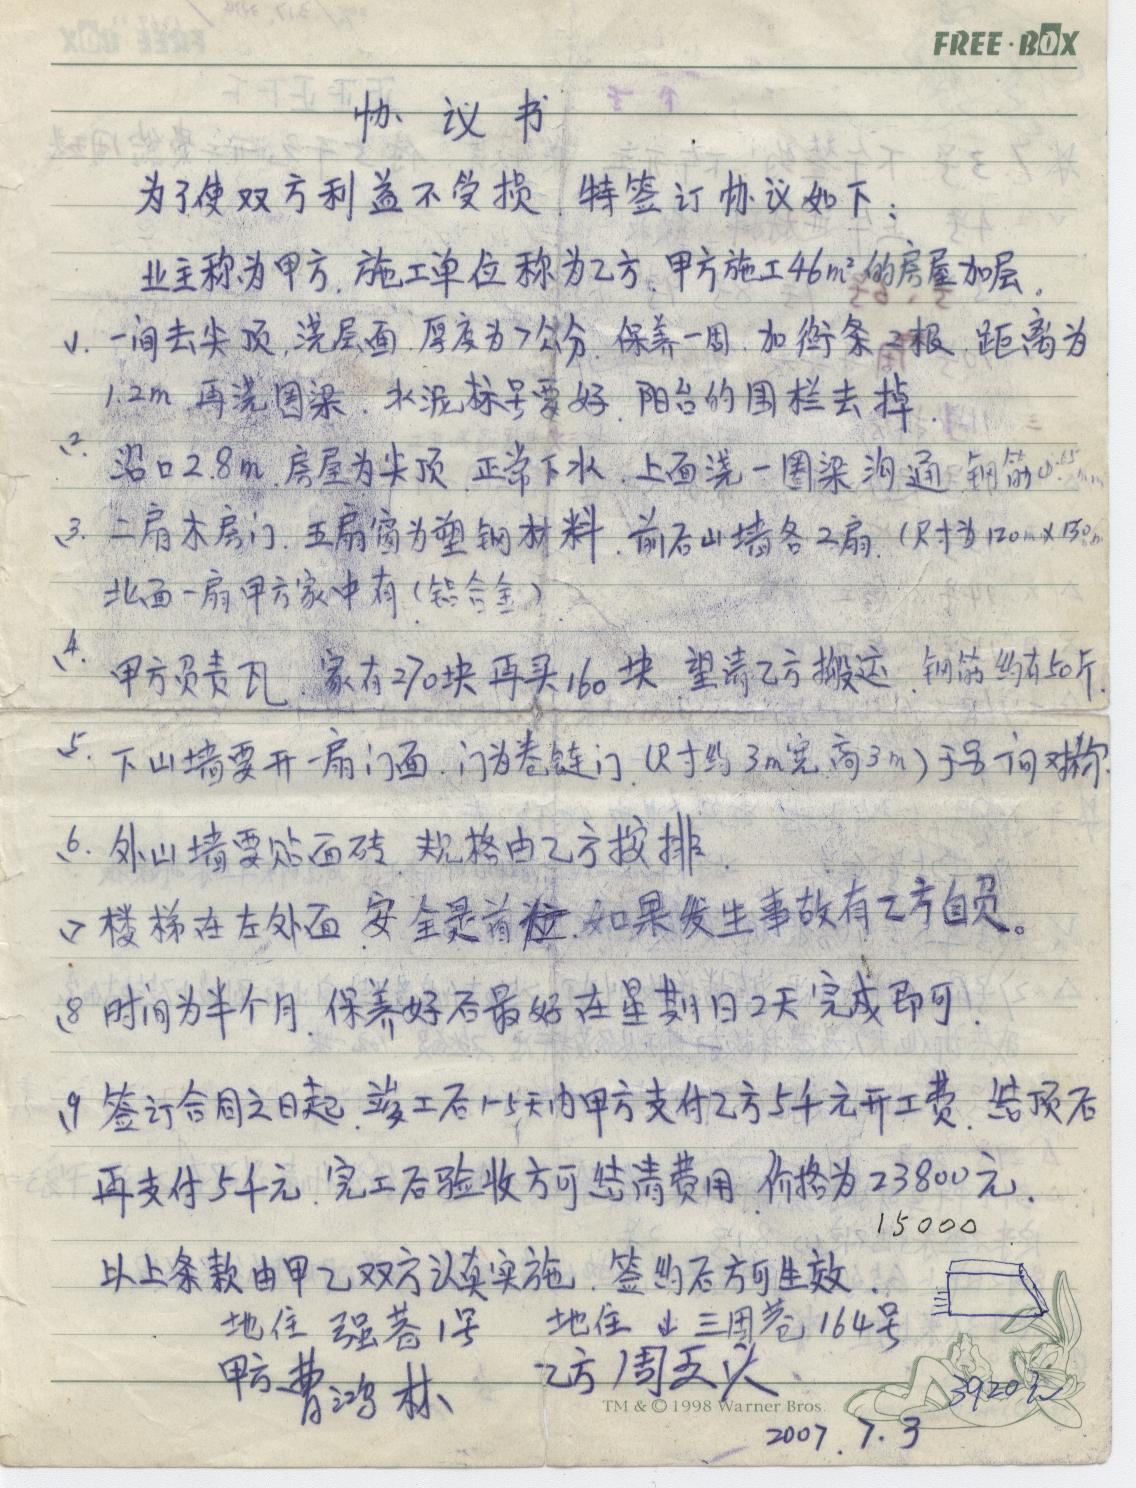 FREE·BOX
协议书
为了使双方利益不受损.特签订协议如下:
业主称为甲方.施工单位称为乙方.甲方施工46m²的房屋加层.
1. 一间去尖顶.浇层面.厚度为7公分.保养一周.加衍条2根.距离为
1.2m 再浇圈梁.水泥标号要好.阳台的围栏去掉.
2. 沿口2.8m.房屋为尖顶 正常下水.上面浇一圈梁沟通.钢筋
3. 二扇木房门.五扇窗为塑钢材料.前后山墙各2扇.(尺寸为120m×130m
北面一扇甲方家中有(铝合金)
4. 甲方负责瓦.家有270块再买160块 望请乙方搬运.钢筋约有50斤.
5. 下山墙要开一扇门面.门为卷链门.(尺寸约3m宽.高3m)于另一间对称.
6. 外山墙要贴面砖.规格由乙方按排.
7 楼梯在左外面.安全是首位.如果发生事故有乙方自负。
8 时间为半个月.保养好后最好在星期日2天完成即可.
9 签订合同之日起.竣工后1-5天内甲方支付乙方5千元开工费.结顶后
再支付5千元.完工后验收方可结清费用.价格为23800元.
15000
以上条款由甲乙双方认真实施.签约后方可生效.
地住 强巷1号 地住 山三周巷164号
甲方 曹鸿林 乙方 周五火
3920元
TM & © 1998 Warner Bros.
2007.7.3